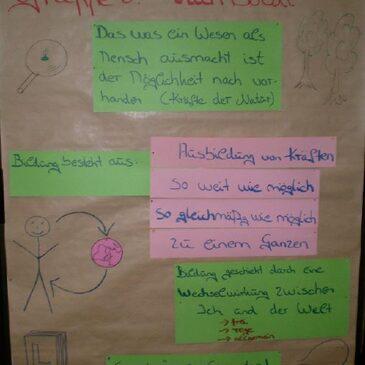 Gruppe
Das was ein Wesen als
Mensch ausmacht ist
der Möglichkeit nach vor-
handen (Kräfte der Natur)
Bildung besteht aus:
Ausbildung von Kräften
so weit wie möglich
so gleichmäßig wie möglich
zu einem Ganzen
Bildung geschieht durch eine
Wechselwirkung zwischen
Ich und der Welt
→ frei
→ rege
→ allgemein